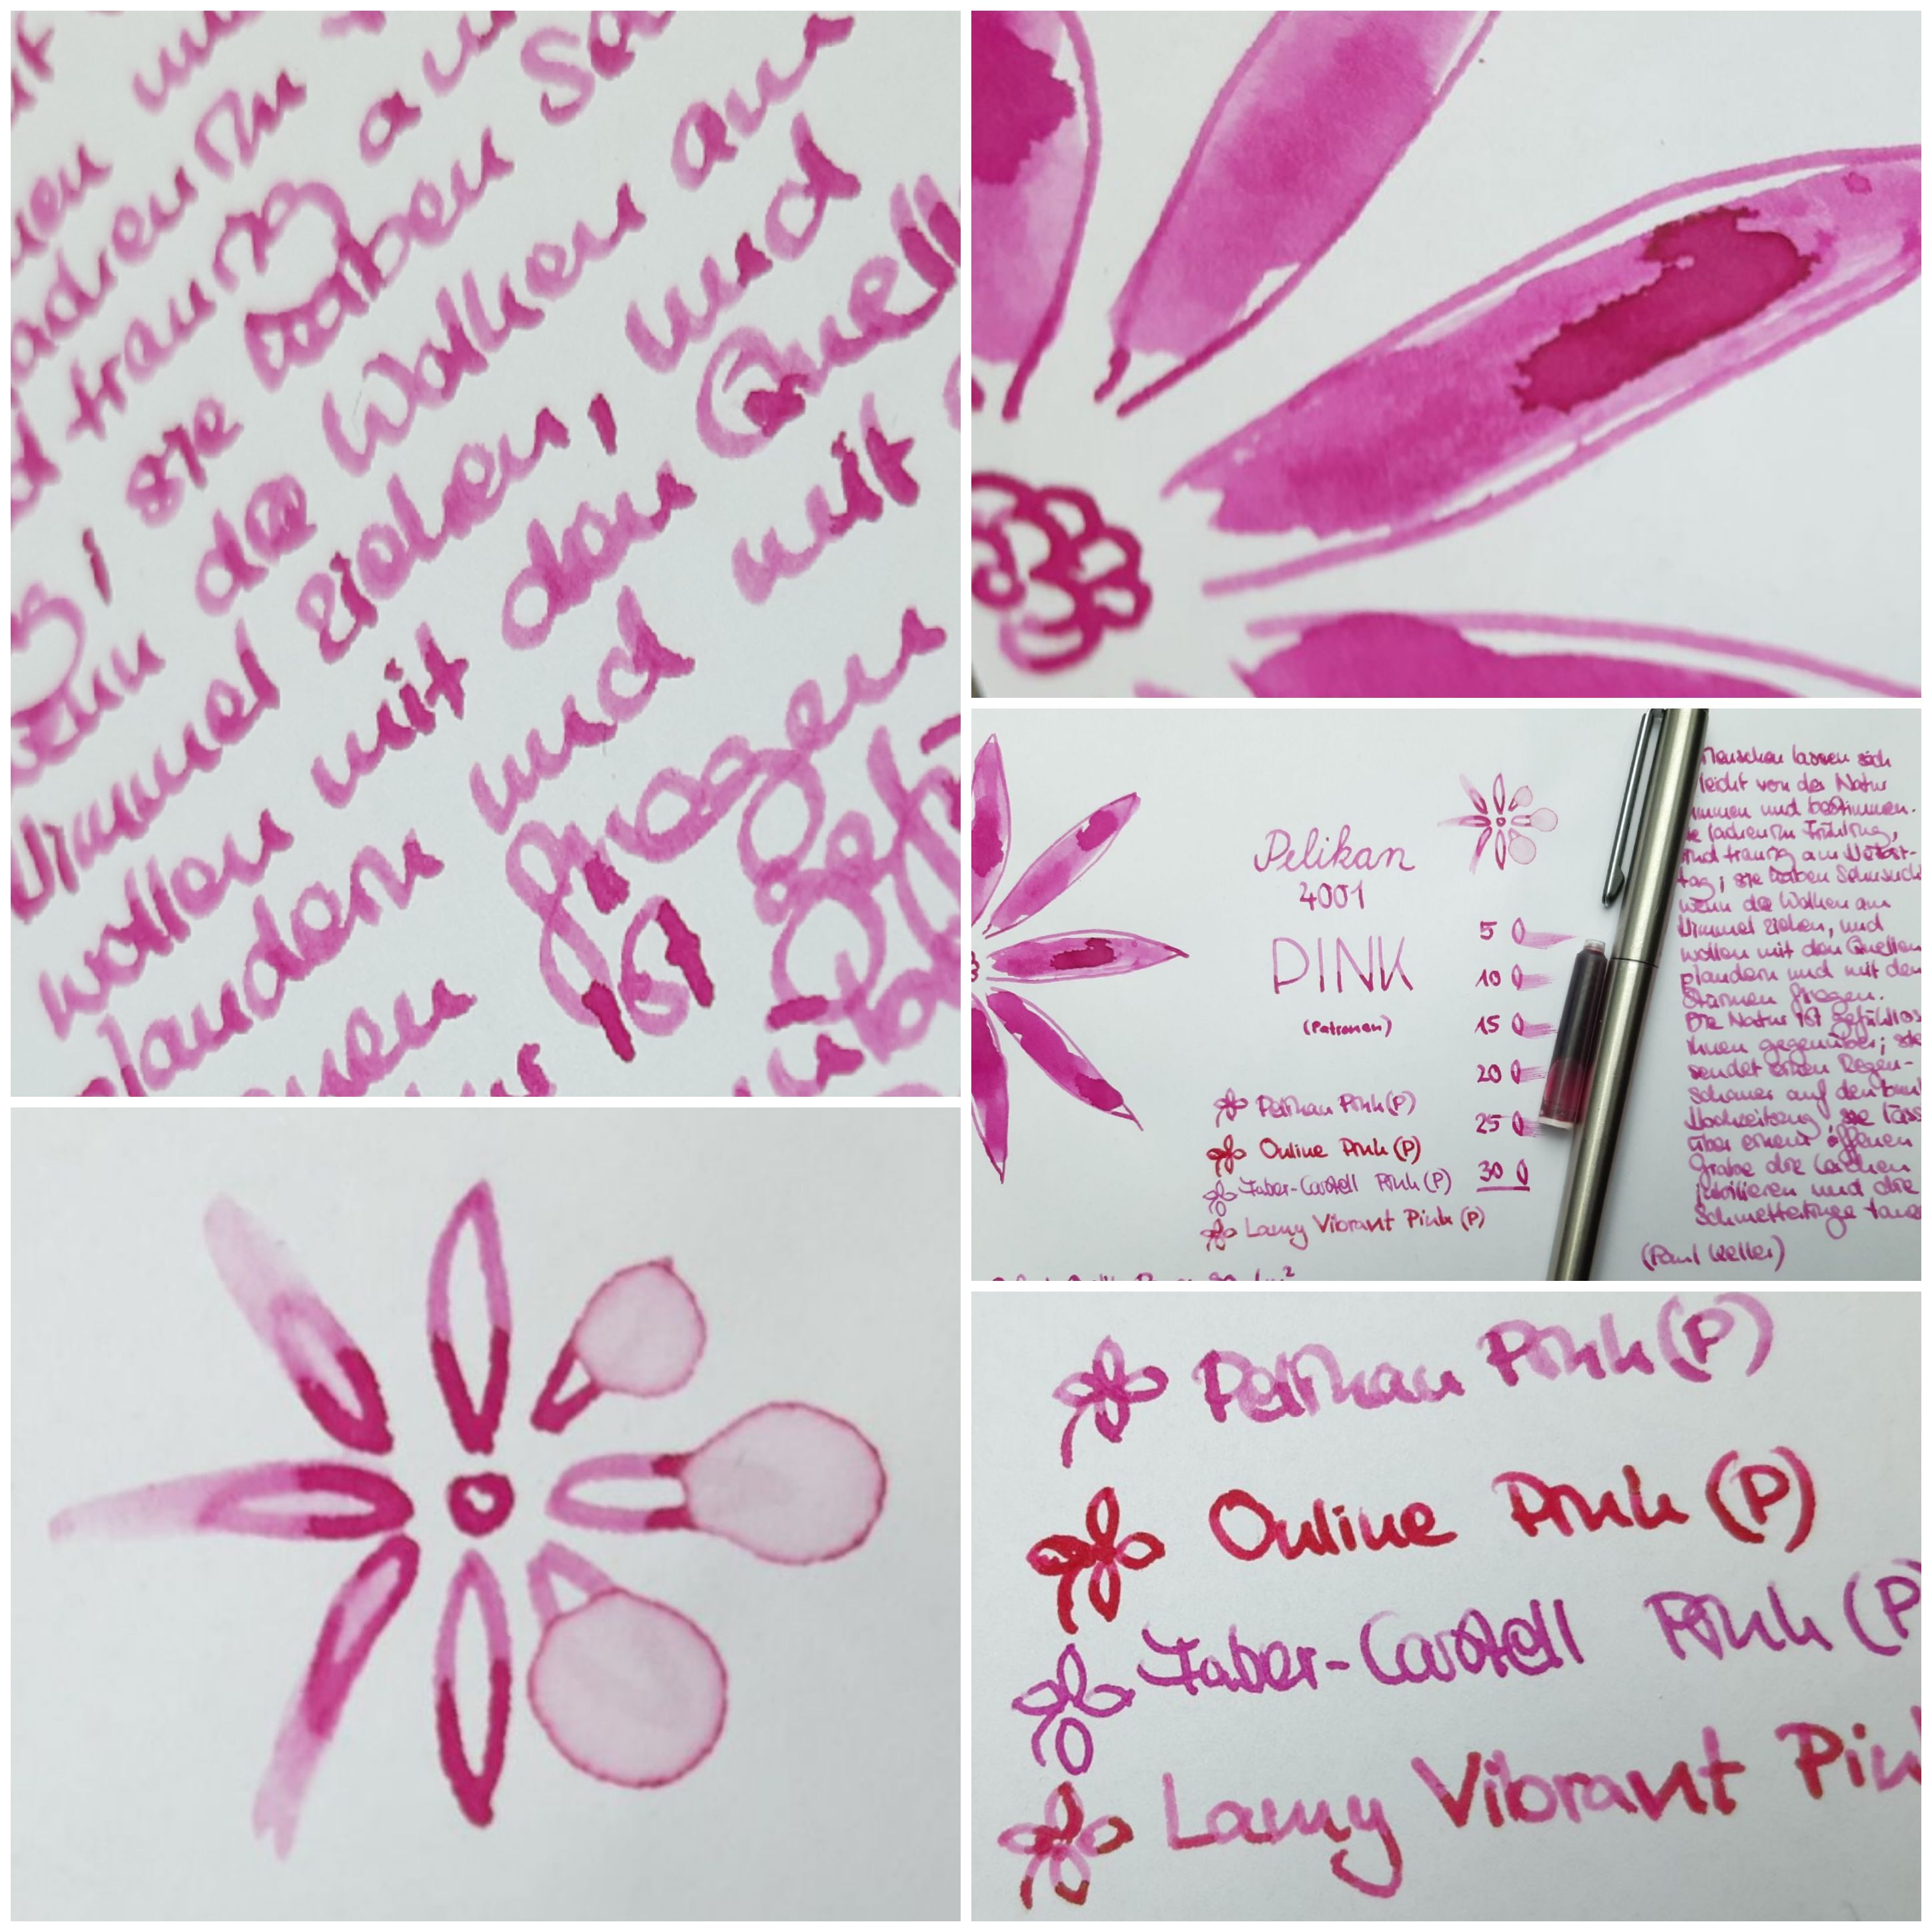 und
au
haben
wenn die Wolken am
Himmel ziehen, und
wollen mit den Quell
plaudern und mit
fragen
ist
Pelikan
4001
PINK
(Patronen)
Pelikan Pink (P)
Online Pink (P)
Faber-Castell Pink (P)
Lamy Vibrant Pink (P)
5
10
15
20
25
30
Menschen lassen sich
leicht von der Natur
immen und bestimmen.
ie lachen im Frühling,
sind traurig am Herbst-
tag; sie haben Sehnsuch
wenn die Wolken am
Himmel ziehen, und
wollen mit den Quellen
plaudern und mit den
Stürmen fragen.
Die Natur ist gefühllos
ihnen gegenüber; sie
sendet einen Regen-
schauer auf den
Hochzeitszug sie läss
über einem offenen
Grabe die Lerchen
jubilieren und die
Schmetterlinge tanz
(Paul Keller)
Pelikan Pink (P)
Online Pink (P)
Faber-Castell Pink (P
Lamy Vibrant Pin